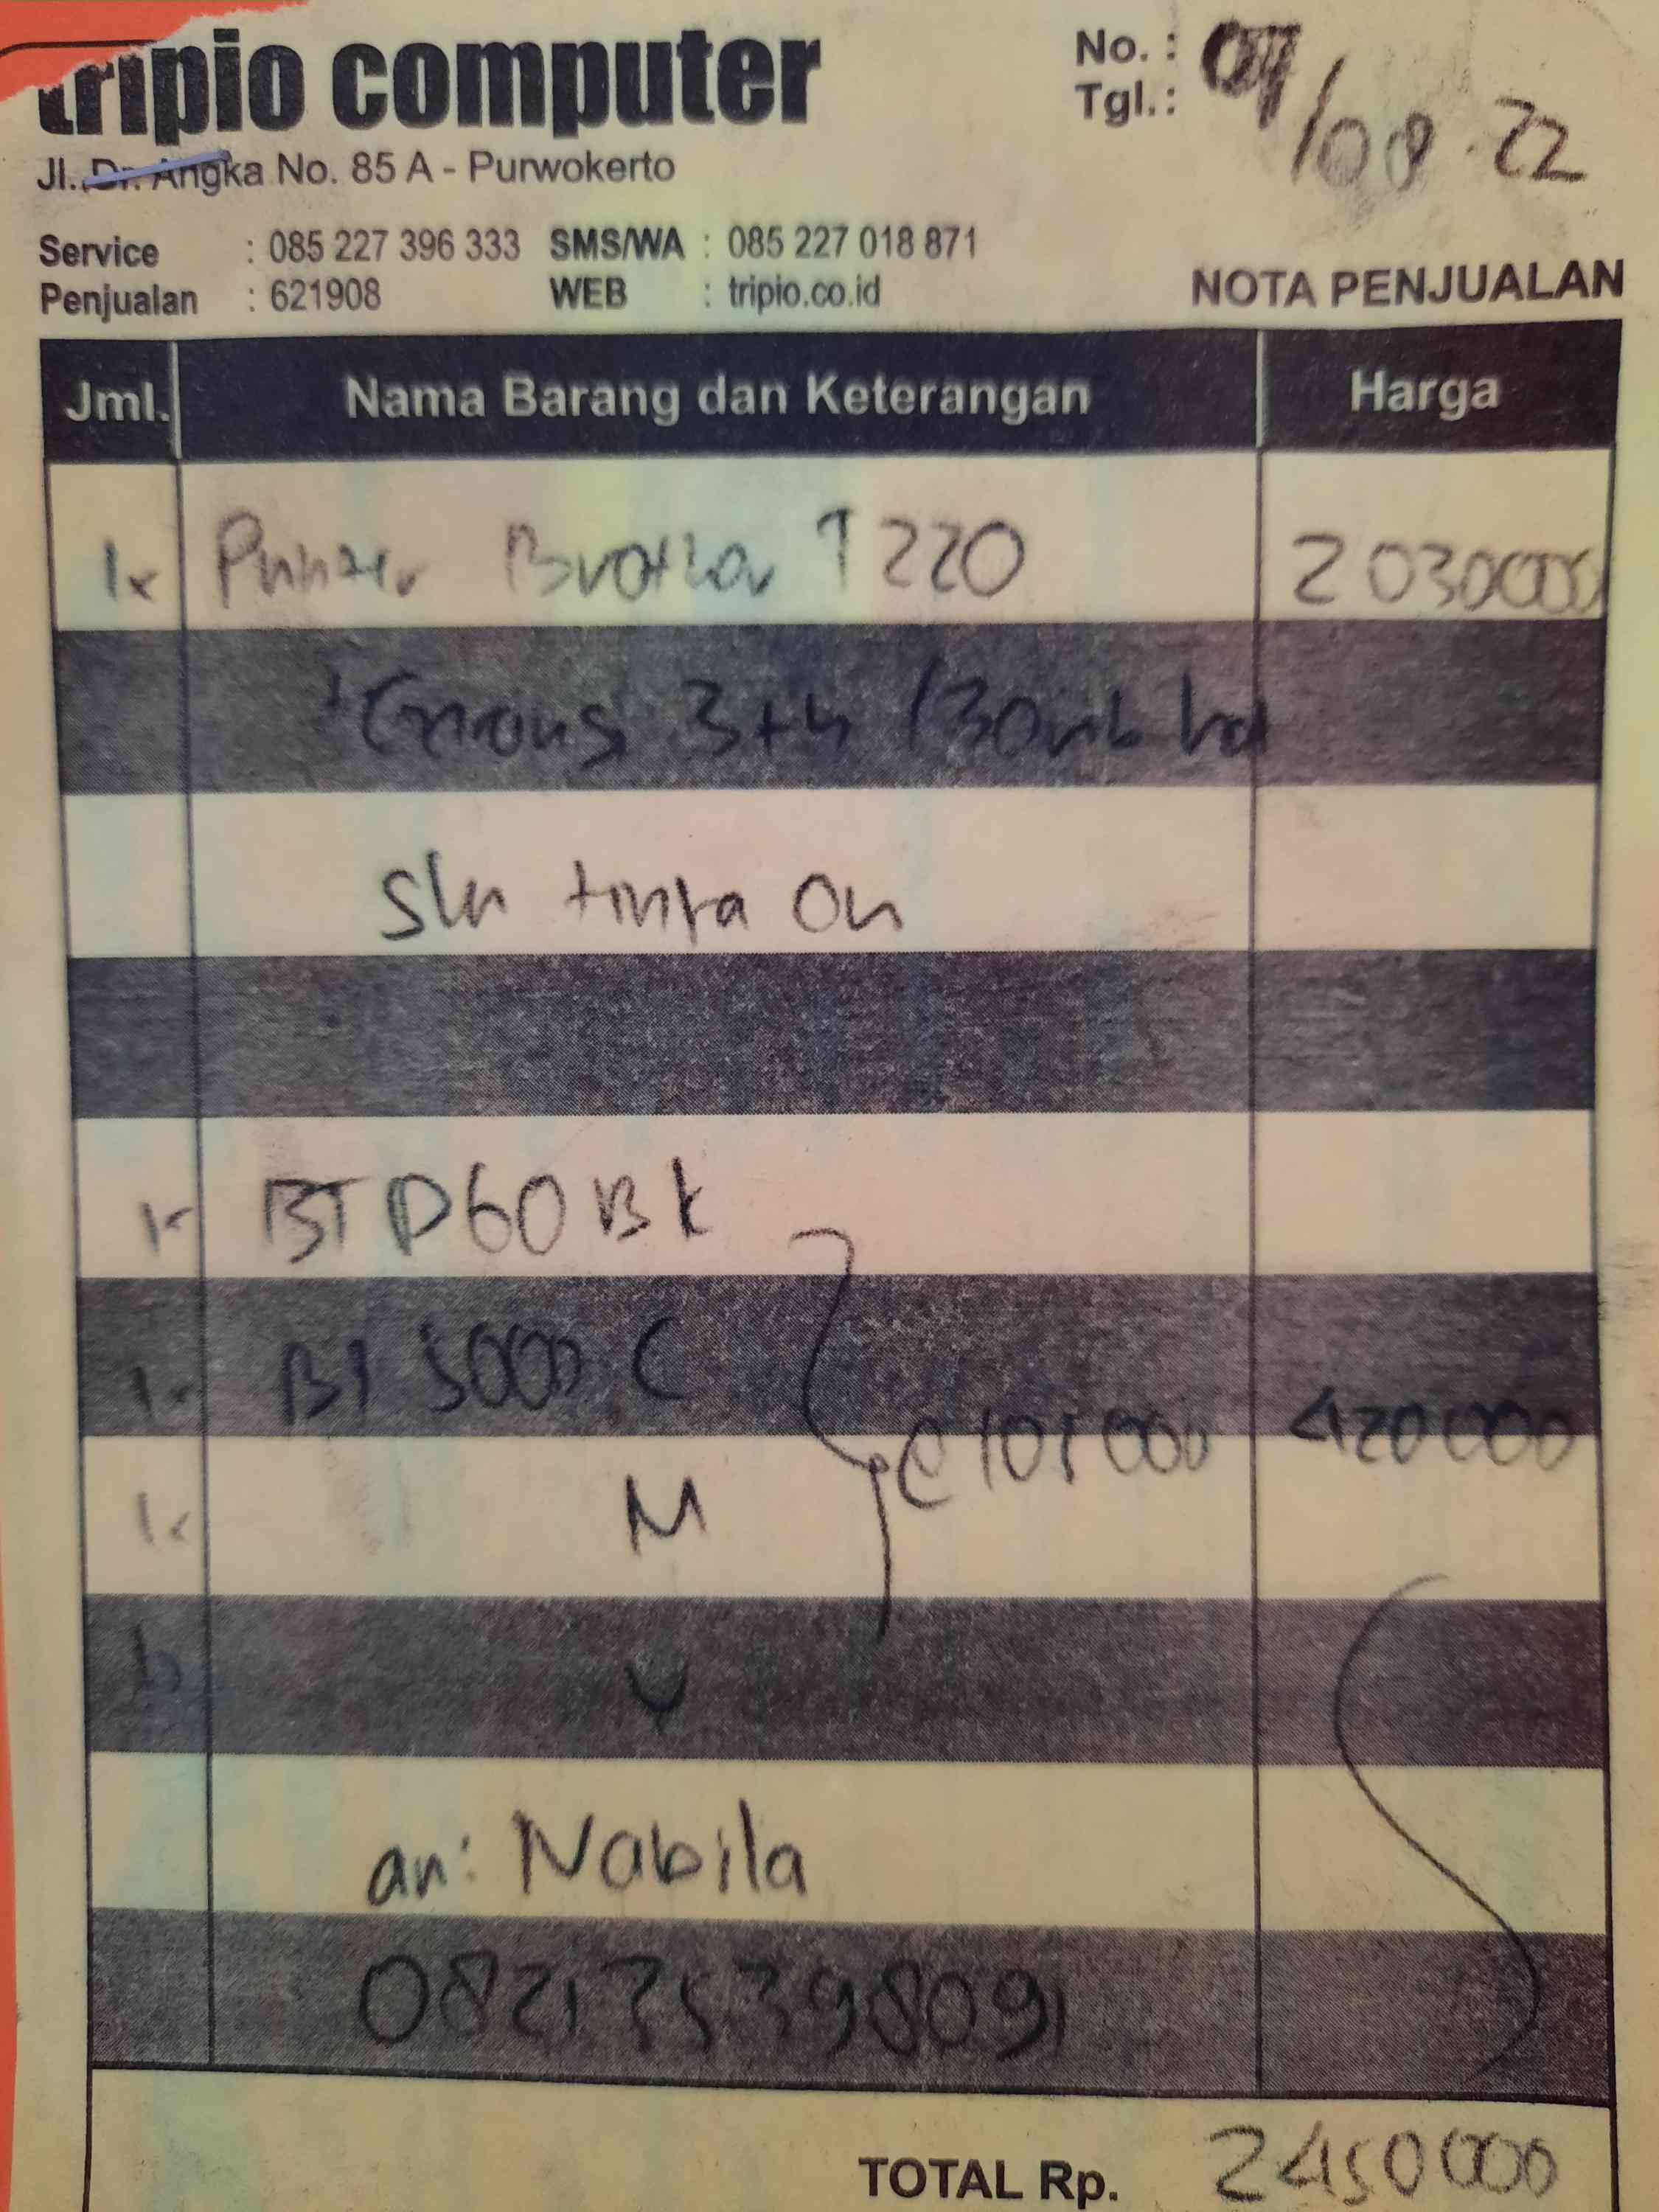 tripio computer
No. :
Tgl.: 09/08.22
Jl. Dr. Angka No. 85 A - Purwokerto
Service : 085 227 396 333 SMS/WA : 085 227 018 871
Penjualan : 621908 WEB : tripio.co.id
NOTA PENJUALAN
Jml. Nama Barang dan Keterangan Harga
1x Printer Brother T220 2030000
3th /30rb
tinta On
1x BTD60BK
1x BT 5000 C
@ 105000 420000
1x M
1x Y
an: Nabila
TOTAL Rp. 2450000